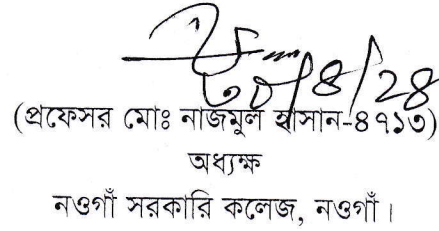 ৩০/৪/২৪
(প্রফেসর মোঃ নাজমুল হাসান-৪৭১৩)
অধ্যক্ষ
নওগাঁ সরকারি কলেজ, নওগাঁ।